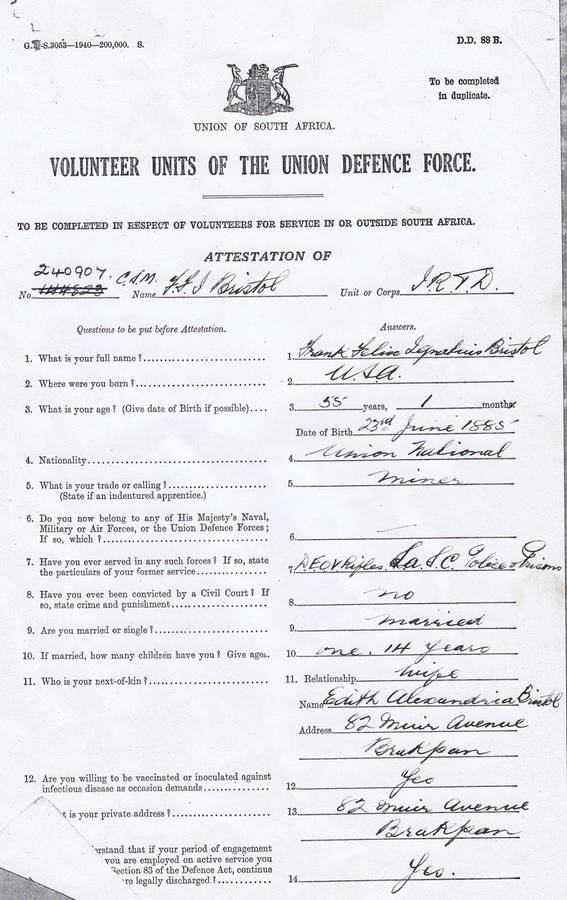 G.P.-S.3053—1940—200,000. S.
D.D. 88 B.
To be completed
in duplicate.
UNION OF SOUTH AFRICA.
VOLUNTEER UNITS OF THE UNION DEFENCE FORCE.
TO BE COMPLETED IN RESPECT OF VOLUNTEERS FOR SERVICE IN OR OUTSIDE SOUTH AFRICA.
ATTESTATION OF
240907.
No. C.S.M. Name F.F.I Bristol Unit or Corps I.R.T.D.
Questions to be put before Attestation. Answers.
1. What is your full name ? 1. Frank Felix Ignatius Bristol
2. Where were you born ? 2. USA.
3. What is your age ? (Give date of Birth if possible) 3. 55 years, 1 months.
Date of Birth 23rd June 1885
4. Nationality 4. Union National
5. What is your trade or calling ? 5. Miner
(State if an indentured apprentice.)
6. Do you now belong to any of His Majesty's Naval,
Military or Air Forces, or the Union Defence Forces ;
If so, which ? 6. —
7. Have you ever served in any such forces ? If so, state
the particulars of your former service 7. D.E.O.V Rifles, S.C. Police & Prisons
8. Have you ever been convicted by a Civil Court ? If
so, state crime and punishment 8. no
9. Are you married or single ? 9. married
10. If married, how many children have you ? Give ages. 10. one. 14 years
11. Who is your next-of-kin ? 11. Relationship wife
Name Edith Alexandria Bristol
Address 82 Muir Avenue
Brakpan
12. Are you willing to be vaccinated or inoculated against
infectious disease as occasion demands 12. Yes
at is your private address ? 13. 82 Muir Avenue
Brakpan
erstand that if your period of engagement
you are employed on active service you
Section 83 of the Defence Act, continue
re legally discharged ? 14. Yes.